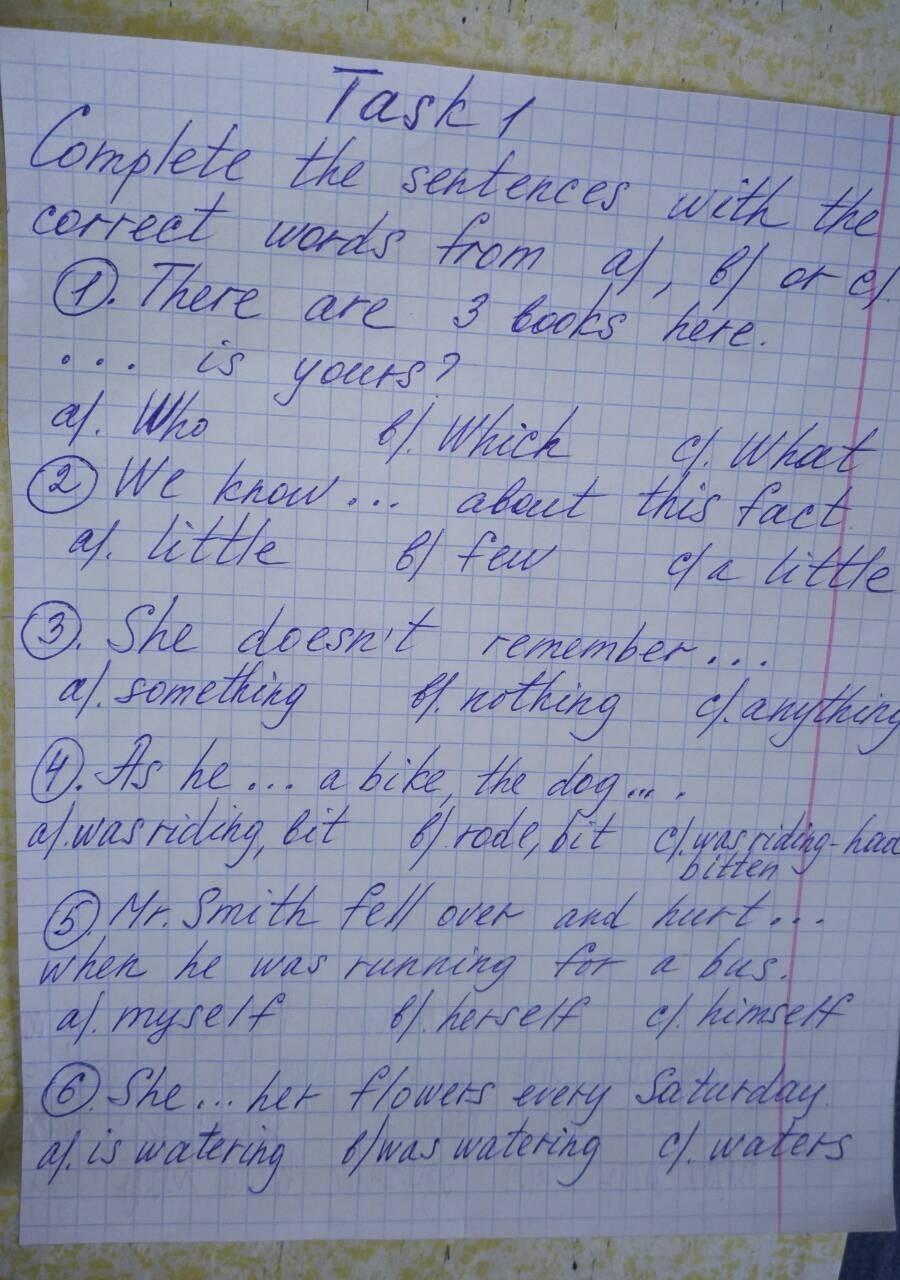 Task 1
Complete the sentences with the
correct words from a), b) or c).
1. There are 3 books here.
... is yours?
a). Who b). Which c). What
2 We know ... about this fact.
a). little b) few c) a little
3. She doesn't remember ...
a). something b). nothing c). anything
4. As he ... a bike, the dog ... .
a). was riding, bit b). rode, bit c). was riding - had
bitten
5. Mr. Smith fell over and hurt ...
when he was running for a bus.
a). myself b). herself c). himself
6. She ... her flowers every Saturday.
a). is watering b) was watering c). waters